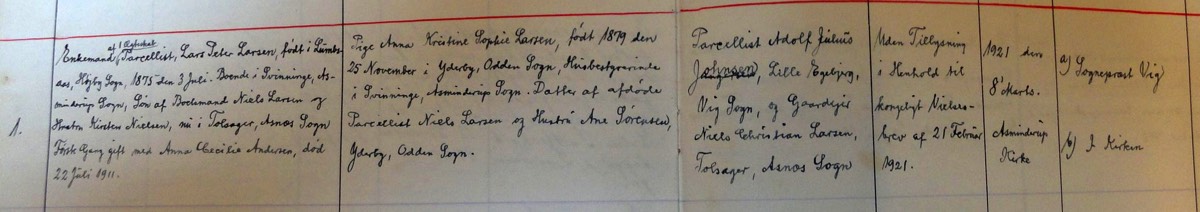 1.
Enkemand af 1 Ægteskab, Parcellist, Lars Peter Larsen, født i Lumbs-
aas, Højby Sogn, 1875 den 3 Juli. Boende i Svinninge, As-
minderup Sogn, Søn af Boelsmand Niels Larsen og
Hustru Kirsten Nielsen, nu i Tolsager, Asnæs Sogn
Første Gang gift med Anna Cecilie Andersen, død
22 Juli 1911.
Pige Anna Kristine Sophie Larsen, født 1879 den
25 November i Yderby, Odden Sogn, Husbestyrerinde
i Svinninge, Asminderup Sogn. Datter af afdøde
Parcellist Niels Larsen og Hustru Ane Sørensen,
Yderby, Odden Sogn.
Parcellist Adolf Julius
Johnsen, Lille Egebjerg,
Vig Sogn, og Gaardejer
Niels Christian Larsen,
Tolsager, Asnæs Sogn
Uden Tillysning
i Henhold til
kongeligt Vielses-
brev af 21 Februar
1921.
1921 den
8' Marts.
Asminderup
Kirke
a) Sognepræst Vig
b) I Kirken